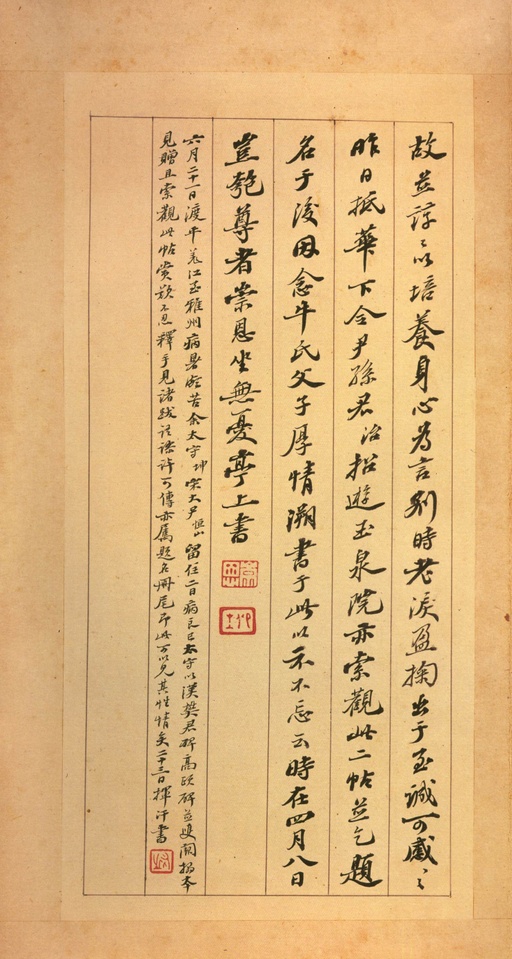 故並諄々以培養身心為言別時老淚盈掬出于至誠可感々
昨日抵華下令尹孫君治招遊玉泉院亦索觀此二帖並乞題
名于後因念牛氏父子厚情溯書于此以示不忘云時在四月八日
豈匏尊者崇恩坐無憂亭上書
六月二十一日渡平羌江至雅州病暑頗苦余太守坤宋大尹恒山留住二日病良已太守以漢樊君碑高頤碑並雙闕搨本
見贈且索觀此帖賞歎不忍釋手見諸跋語許可傳亦屬題名冊尾即此可以見其性情矣二十三日揮汗書